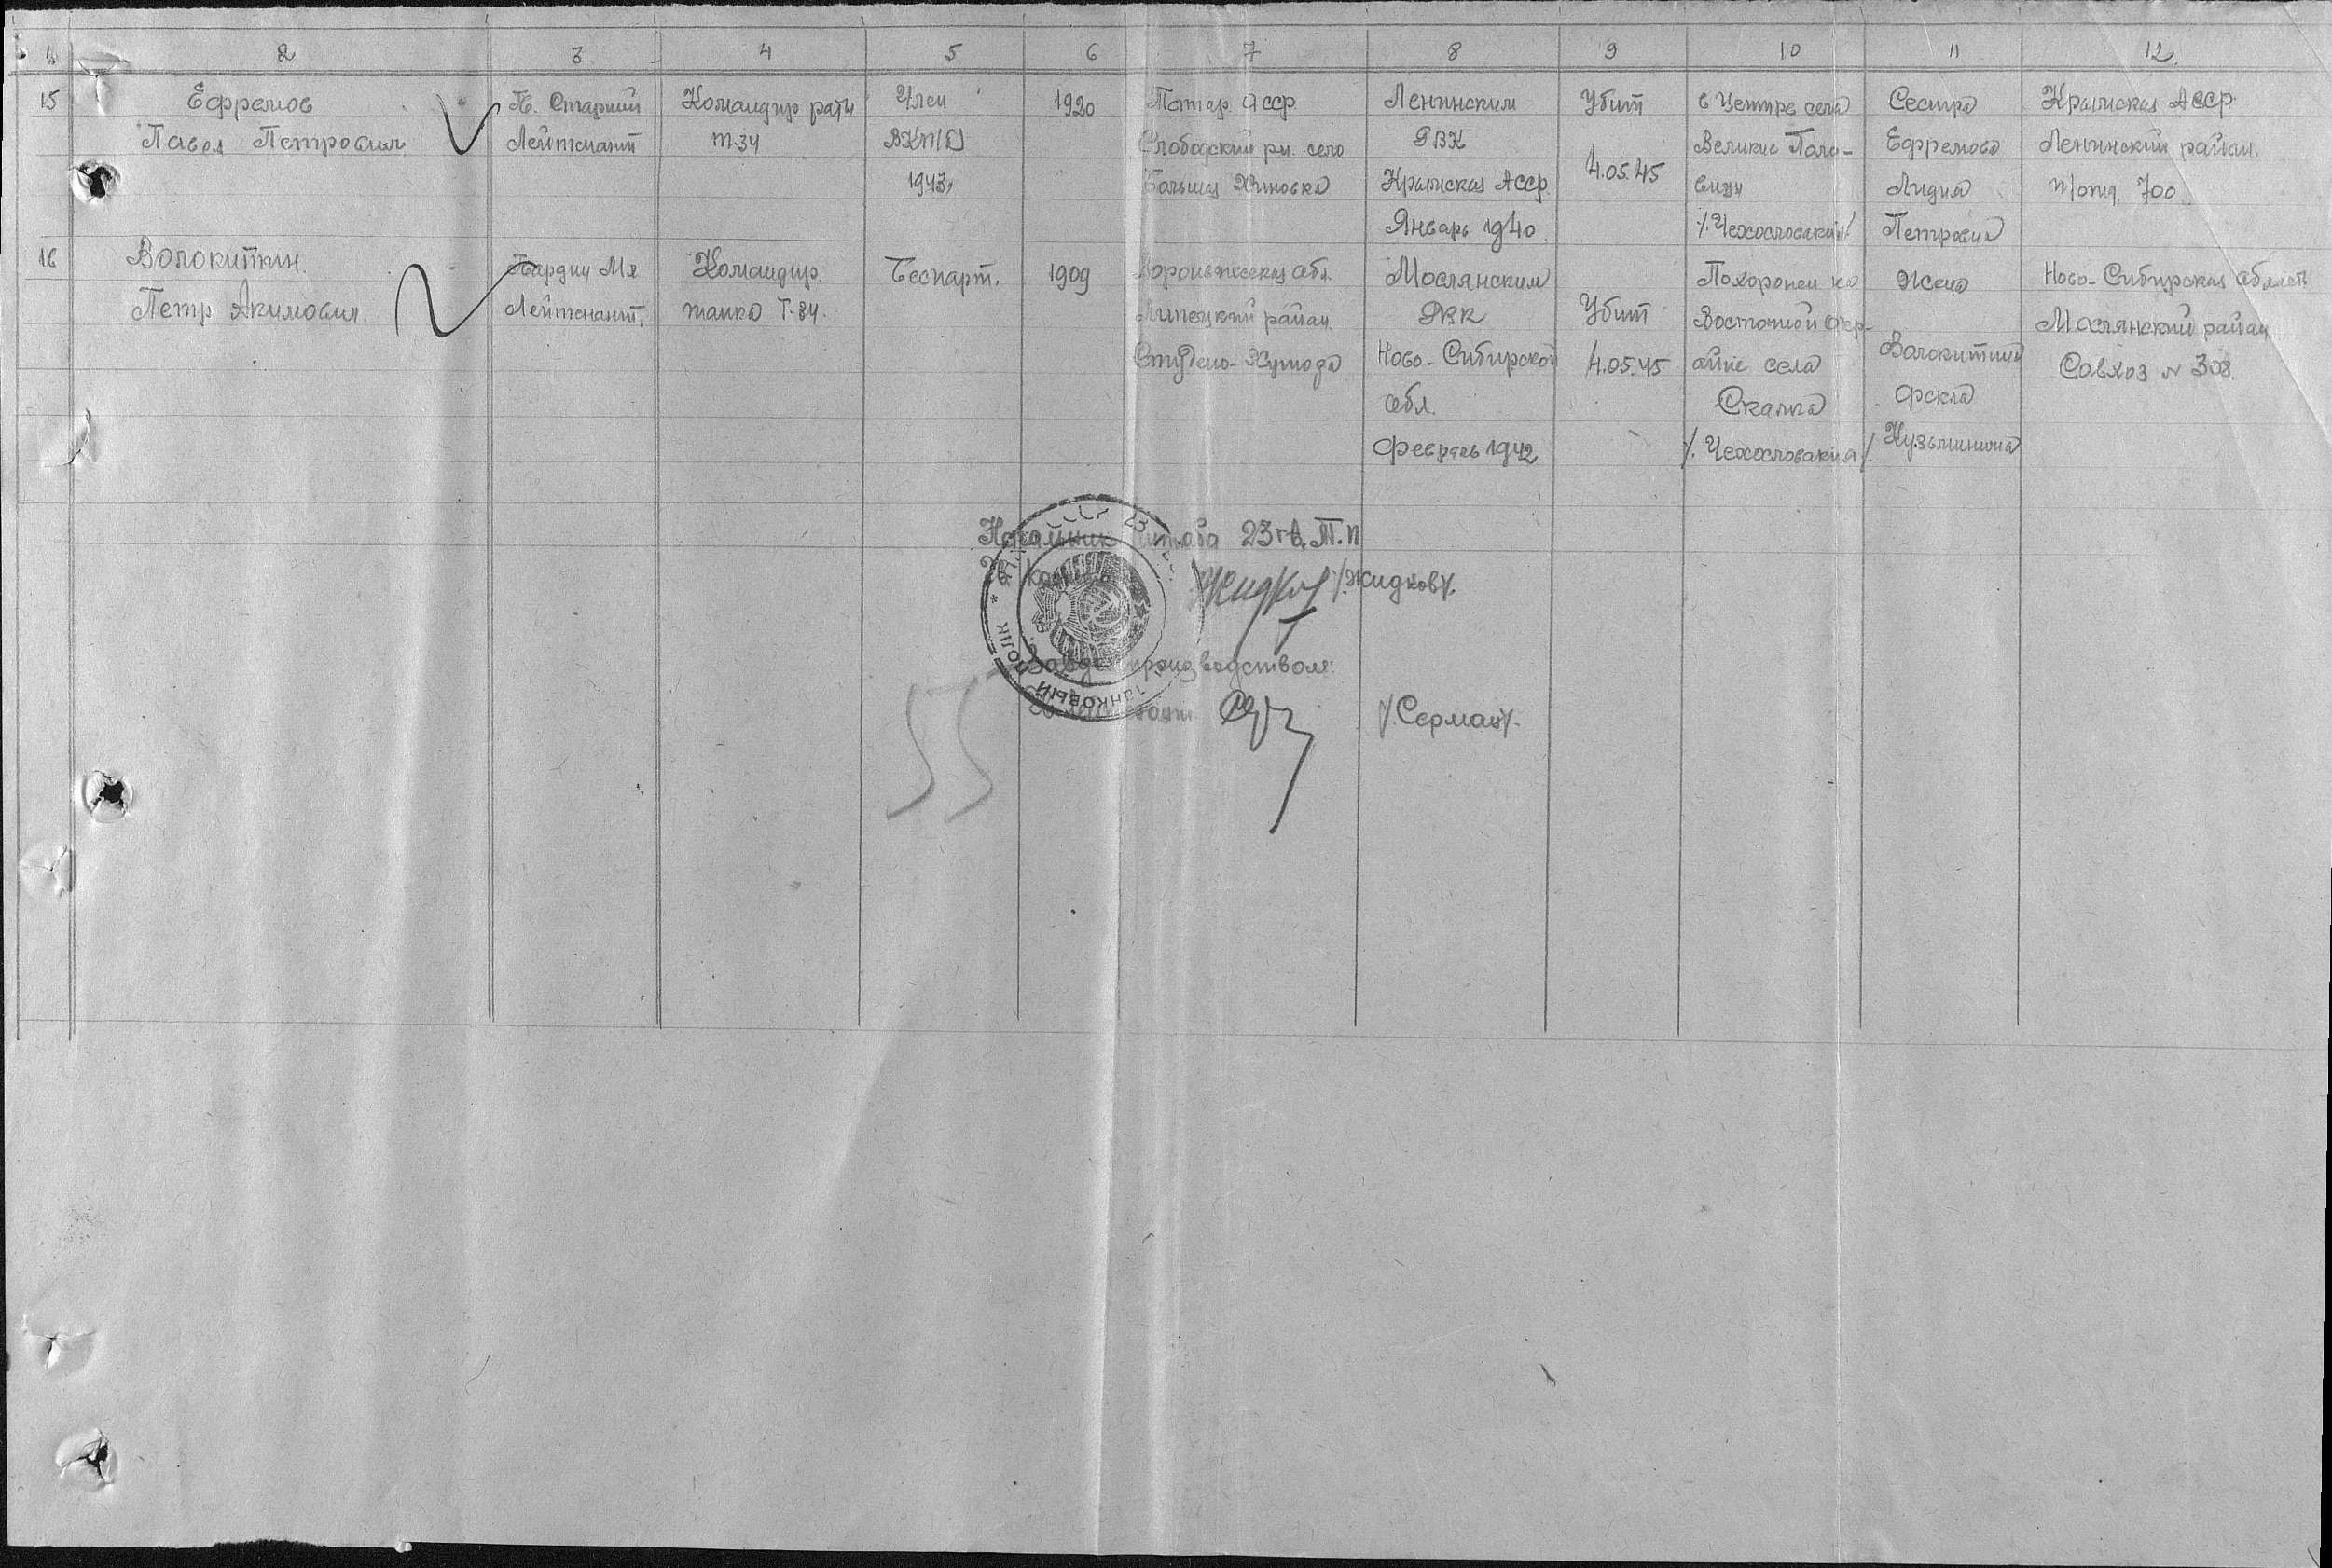 1. 2 3 4 5 6 7 8 9 10 11 12.
15 Ефремов Гв. Старший Командир роты Член 1920 Татар. Асср Ленинским Убит в Центре села Сестра Крымская Асср.
Павел Петрович Лейтенант Т-34 ВКП/б/ Слободский рн. село РВК Великие Поло- Ефремова Ленинский район.
1943, Большая Крымская Асср. 4.05.45 Лидия п/отд. 700
Январь 1940. /.Чехословакия/. Петровна
16 Волокитин. Гвардии Мл. Командир. Беспарт. 1909 Воронежская обл. Маслянским Похоронен на Жена Ново-Сибирская область
Петр Акимович. Лейтенант. танка Т-34. Липецкий район. РВК Убит Восточной окр- Маслянский район
Ново-Сибирской 4.05.45 аине села Волокитина Совхоз № 308.
обл. Скалка Фекла
Февраль 1942 /. Чехословакия/. Кузьминична
Начальник штаба 23 гв. Т.П
Жидков /.Жидков/.
Завделопроизводством:
/.Серман/.
55
23
танковый полк